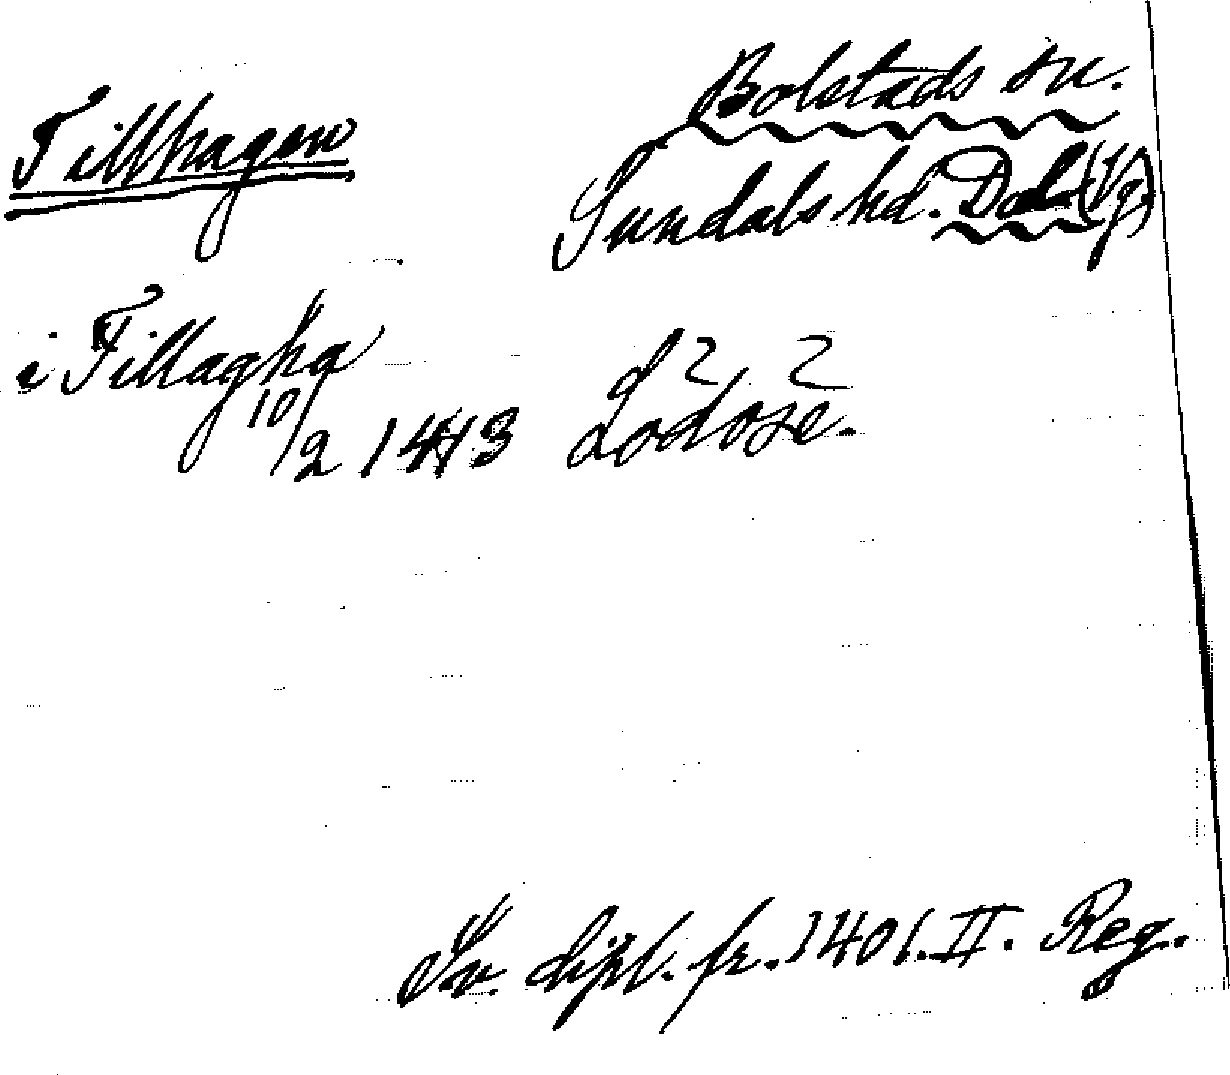 Tillhagen
Bolstads sn.
Sundals hd. Dal (Vg.)
i Tillagha
10/2 1413 Lödöse.
Sv. dipl. fr. 1401. II. Reg.